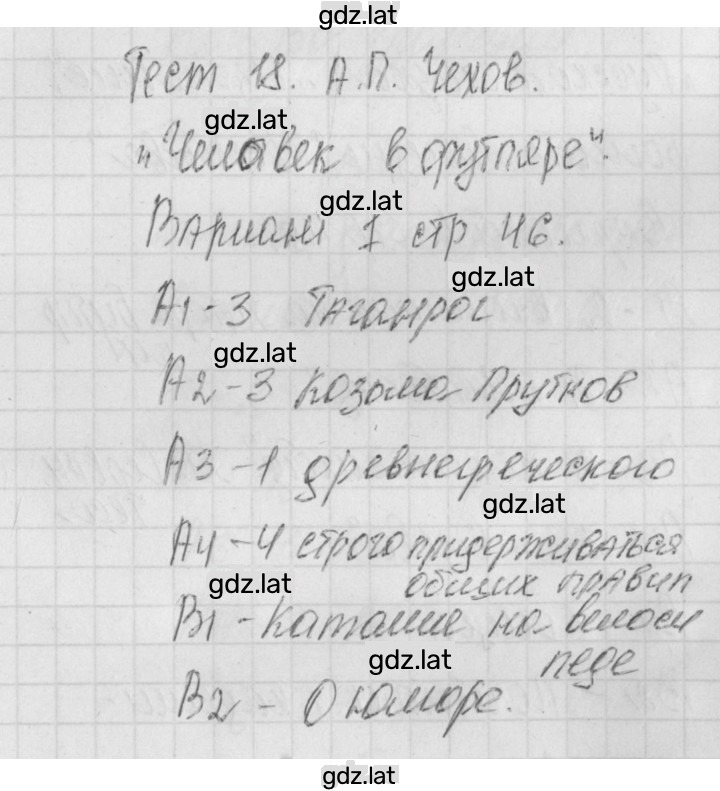 gdz.lat
Тест 18. А.П. Чехов.
gdz.lat
„Человек в футляре“.
gdz.lat
Вариант 1 стр 46.
gdz.lat
А1-3 Таганрог
gdz.lat
А2-3 Козьма Прутков
А3-1 древнегреческого
gdz.lat
А4-4 строго придерживаться
общих правил
gdz.lat
В1-Катание на велоси
педе
gdz.lat
В2 - О юморе.
gdz.lat